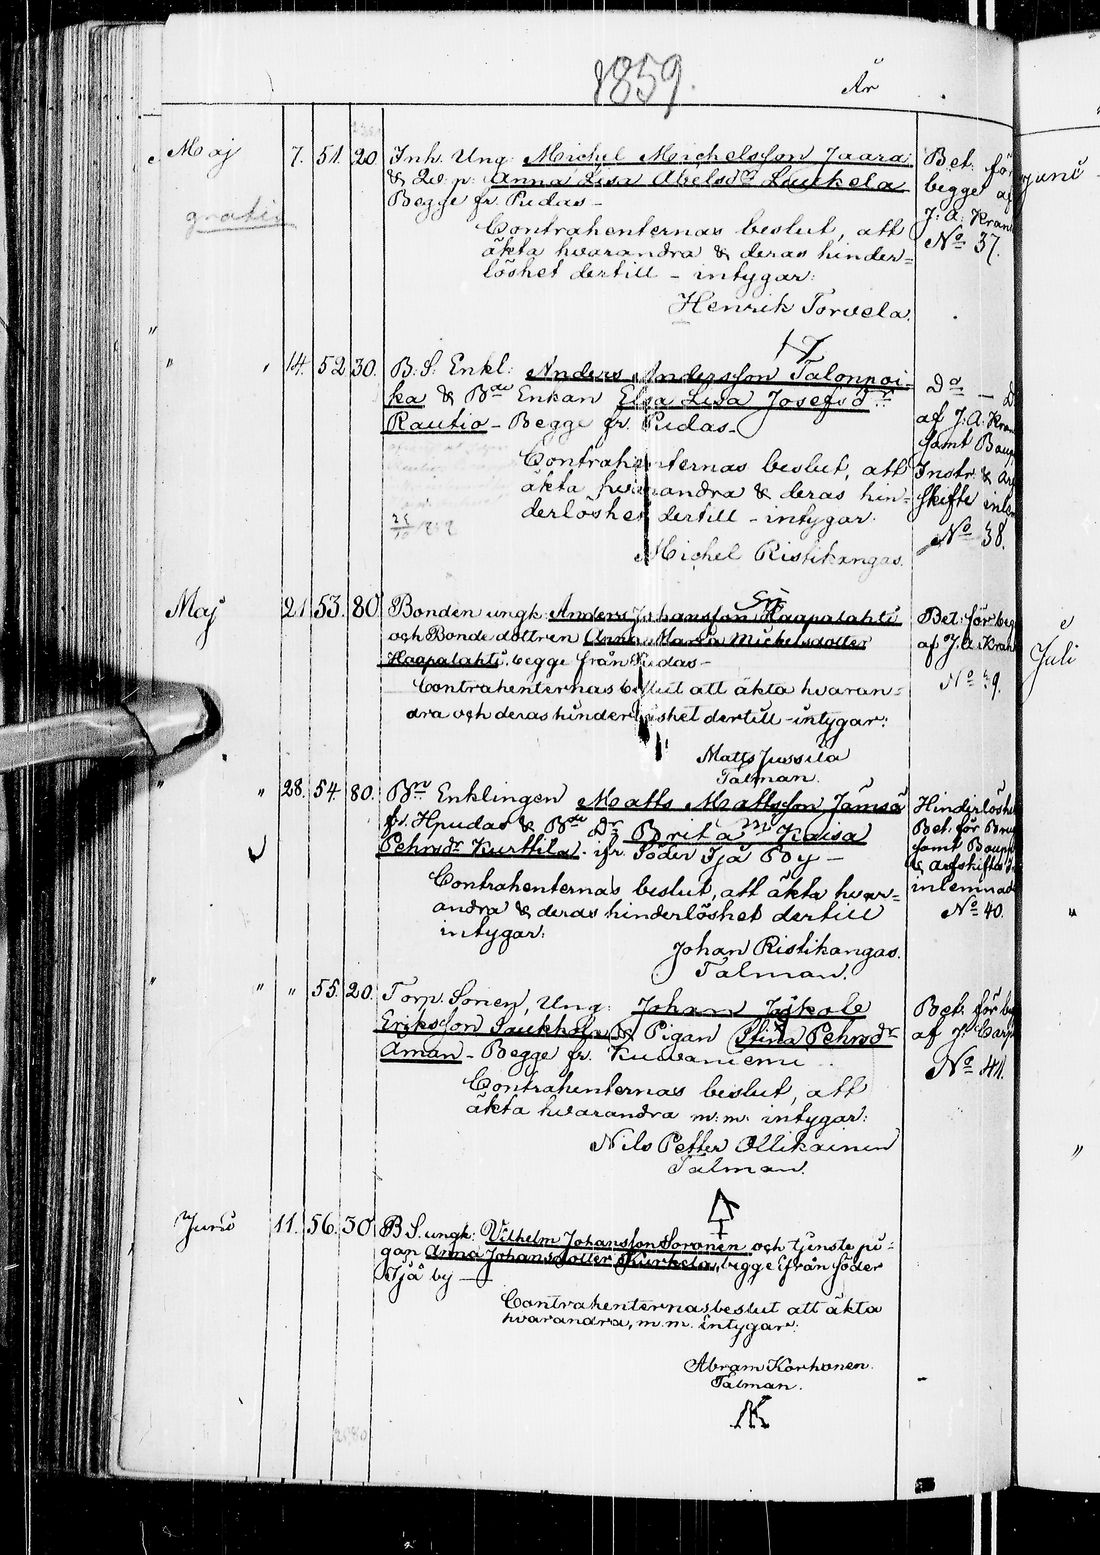 1859.
År
Maj 7. 51. 20 Inh. Ung. Michel Michelsson Jaara
& Qv. p: Anna Lisa Abelsdr Laukela
Begge fr. Pudas –
gratis
Contrahenternas beslut, att
äkta hvarandra & deras hinder=
löshet dertill – intygar:
Henrik Torvela.
Bet. för
begge af
J: A: Kran
No 37.
" 14. 52 30. B: S: Enkl: Anders Andersson Talonpoi-
ka & Bde Enkan Elsa Lisa Josefsdr
Rautio – Begge fr. Pudas –
Contrahenternas beslut, att
äkta hvarandra & deras hin=
derlöshet dertill – intygar.
Michel Ristikangas.
Do – D
af J: A: Kran
samt Boupp
Instr. & Arf
skifte inlem
No 38.
Maj 21 53. 80 Bonden ungk: Anders Johansson Haapalahti
och Bonde dottren Anna Maria Michelsdotter
Haapalahti, begge från Pudas –
Contrahenternas beslut att äkta hvaran=
dra och deras hinderlöshet dertill – intygar:
Matts Jussila
Talman.
Bet: för beg
af J. A. Kran
No 39.
" 28. 54. 80. Bn Enklingen Matts Mattsson Jämsä
fr. Hpudas & Bde Dr Brita Kaisa
Pehrsdr Kurttila. ifr. Söder Ijå By –
Contrahenternas beslut, att äkta hvar=
andra & deras hinderlöshet dertill
intygar:
Johan Ristikangas.
Talman.
Hinderlöshe
Bet. för Bru
samt Boupp
& Arfskifts
inlemnad
No 40.
" " 55. 20. Torp. Sonen, Ung: Johan Jakob
Eriksson & Pigan Stina Pehrsdr
Åman – Begge fr. Kuivaniemi
Contrahenternas beslut, att
äkta hvarandra m: m: intygar:
Nils Petter Ollikainen
Talman.
Bet. för be
af J. Carp
No 41.
Juni 11. 56. 50 B S. ungk: Vilhelm Johansson Soronen och tjenste pi=
gan Anna Johansdotter Kurkela, begge ifrån Söder
Ijå by –
Contrahenternas beslut att äkta
hvarandra, m. m. intygar:
Abram Korhonen.
Talman.
AK
Juni
Juli